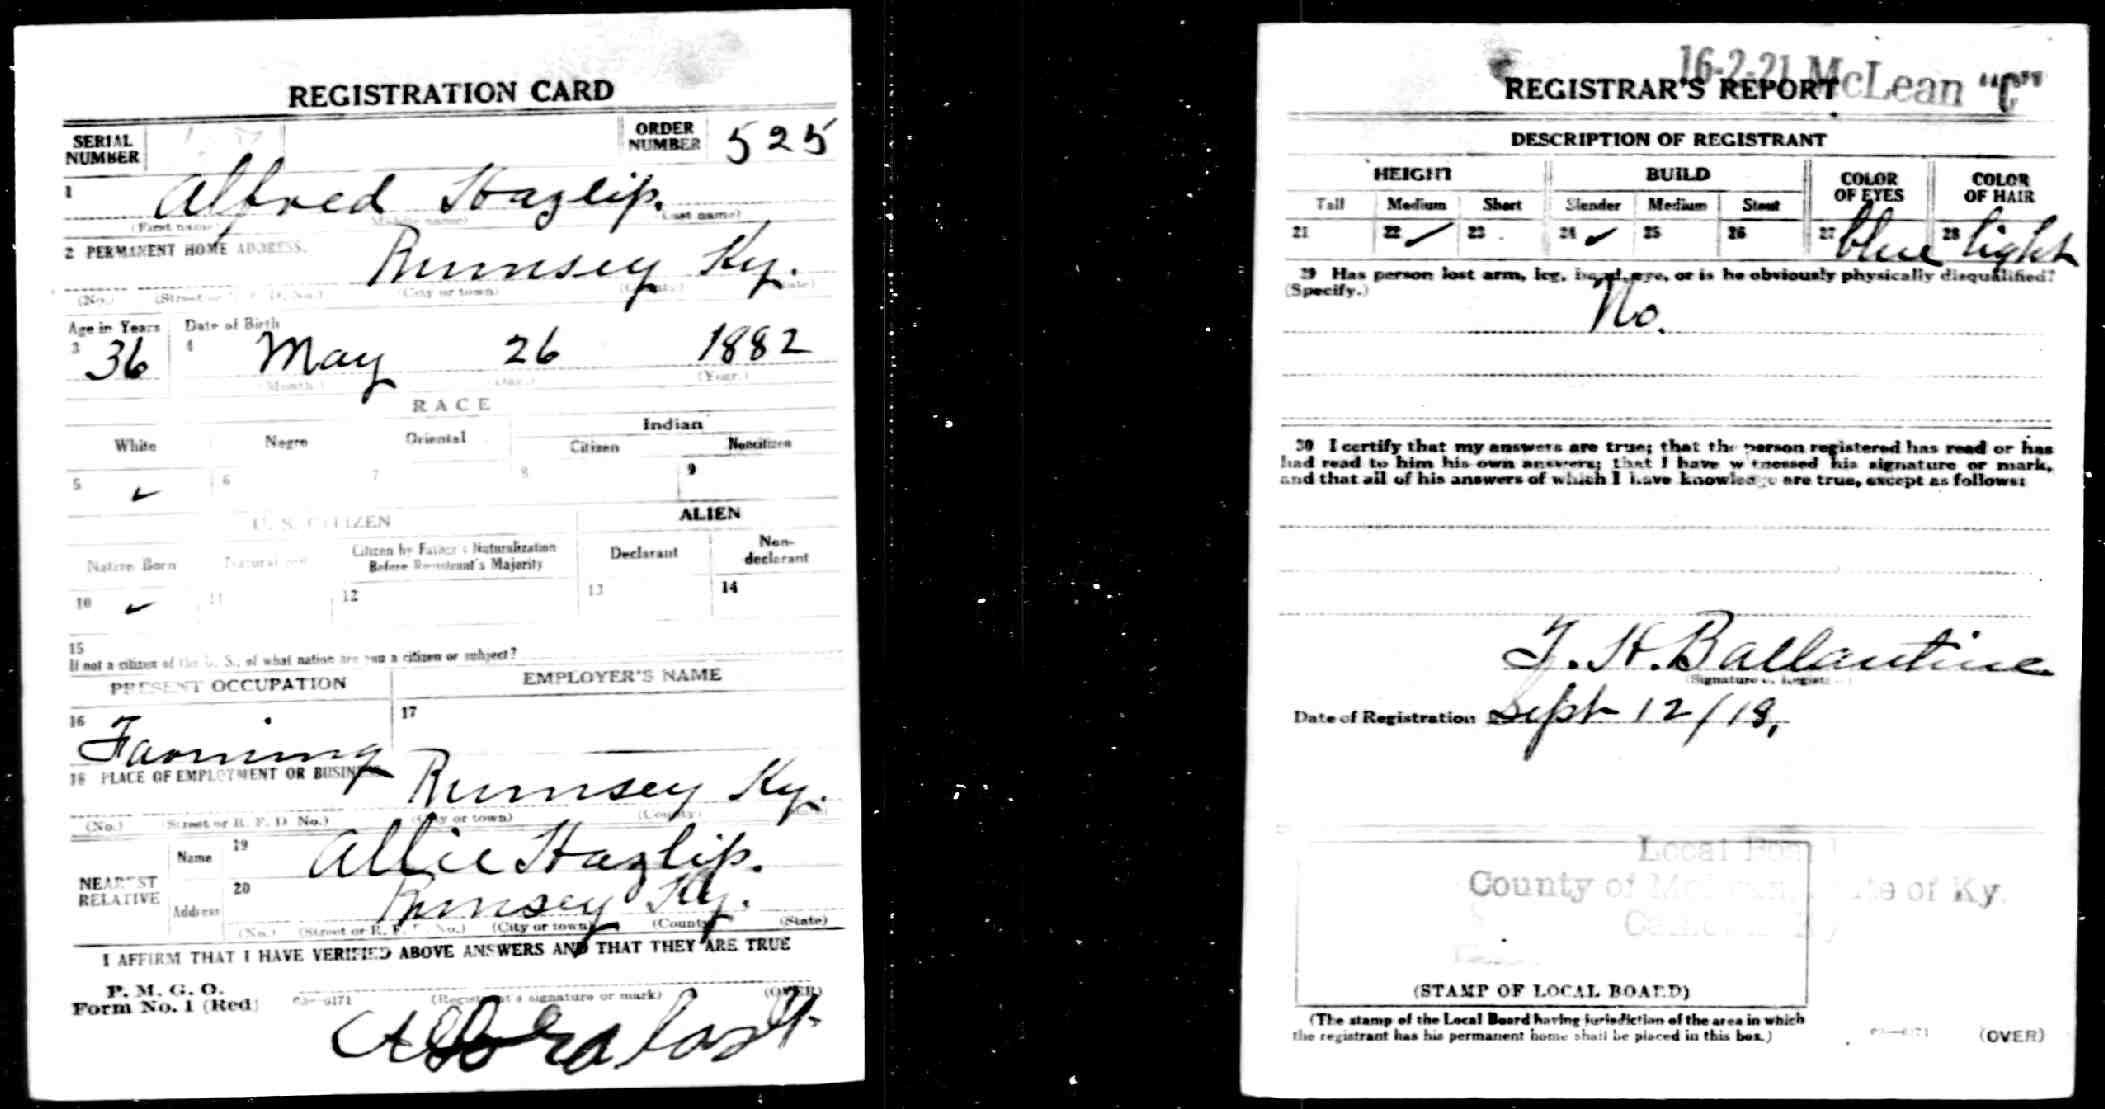 REGISTRATION CARD
SERIAL NUMBER
ORDER NUMBER 525
1 Alfred Hazlip.
(First name) (Middle name) (Last name)
2 PERMANENT HOME ADDRESS. Rumsey Ky.
(No.) (Street or R. F. D. No.) (City or town) (County) (State)
Age in Years Date of Birth
3 36 4 May 26 1882
(Month.) (Day.) (Year.)
RACE
White Negro Oriental Indian
Citizen Noncitizen
5 ✓ 6 7 8 9
U. S. CITIZEN ALIEN
Native Born Naturalized Citizen by Father's Naturalization Before Registrant's Majority Declarant Non-declarant
10 ✓ 11 12 13 14
15
If not a citizen of the U. S., of what nation are you a citizen or subject?
PRESENT OCCUPATION EMPLOYER'S NAME
16 Farming 17
18 PLACE OF EMPLOYMENT OR BUSINESS Rumsey Ky.
(No.) (Street or R. F. D. No.) (City or town) (County) (State)
NEAREST RELATIVE
Name 19 Allie Hazlip.
Address 20 Rumsey Ky.
(No.) (Street or R. F. D. No.) (City or town) (County) (State)
I AFFIRM THAT I HAVE VERIFIED ABOVE ANSWERS AND THAT THEY ARE TRUE
P. M. G. O.
Form No. 1 (Red) 03—6171 (Registrant's signature or mark) (OVER)
16-2-21 McLean "C"
REGISTRAR'S REPORT
DESCRIPTION OF REGISTRANT
HEIGHT BUILD COLOR OF EYES COLOR OF HAIR
Tall Medium Short Slender Medium Stout
21 22 ✓ 23 24 ✓ 25 26 27 blue 28 light
29 Has person lost arm, leg, hand, eye, or is he obviously physically disqualified?
(Specify.) No.
30 I certify that my answers are true; that the person registered has read or has
had read to him his own answers; that I have witnessed his signature or mark,
and that all of his answers of which I have knowledge are true, except as follows:
T. H. Ballantine
(Signature of Registrar)
Date of Registration Sept 12/18,
Local Board
County of McLean, State of Ky.
Calhoun Ky
(STAMP OF LOCAL BOARD)
(The stamp of the Local Board having jurisdiction of the area in which
the registrant has his permanent home shall be placed in this box.)
03—6171 (OVER)